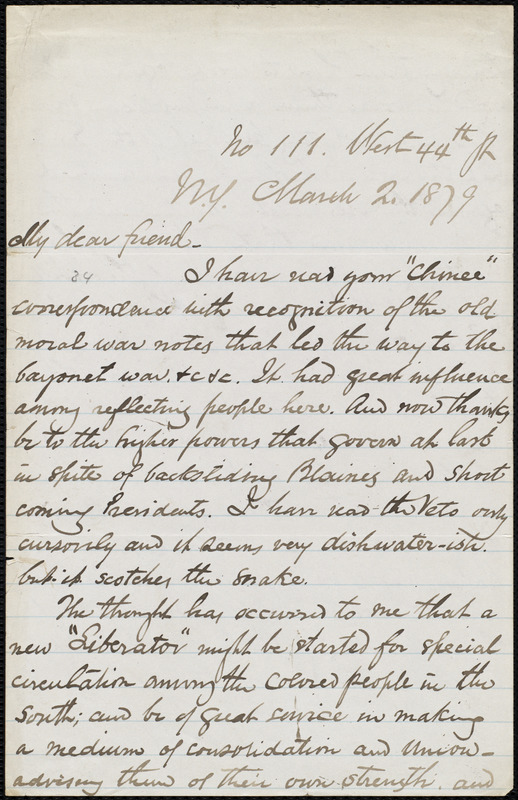 No 111. West 44th St
N.Y. March 2. 1879
My dear friend-
I have read your "Chinee"
correspondence with recognition of the old
moral war notes that led the way to the
bayonet war. &c &c. It had great influence
among reflecting people here. And now thanks
be to the higher powers that govern at last
in spite of backsliding Blaines and short
coming Presidents. I have read the Veto only
cursorily and it seems very dishwater-ish.
but it scotches the snake.
The thought has occurred to me that a
new "Liberator" might be started for special
circulation among the colored people in the
South; and be of great service in making
a medium of consolidation and Union-
advising them of their own strength. and